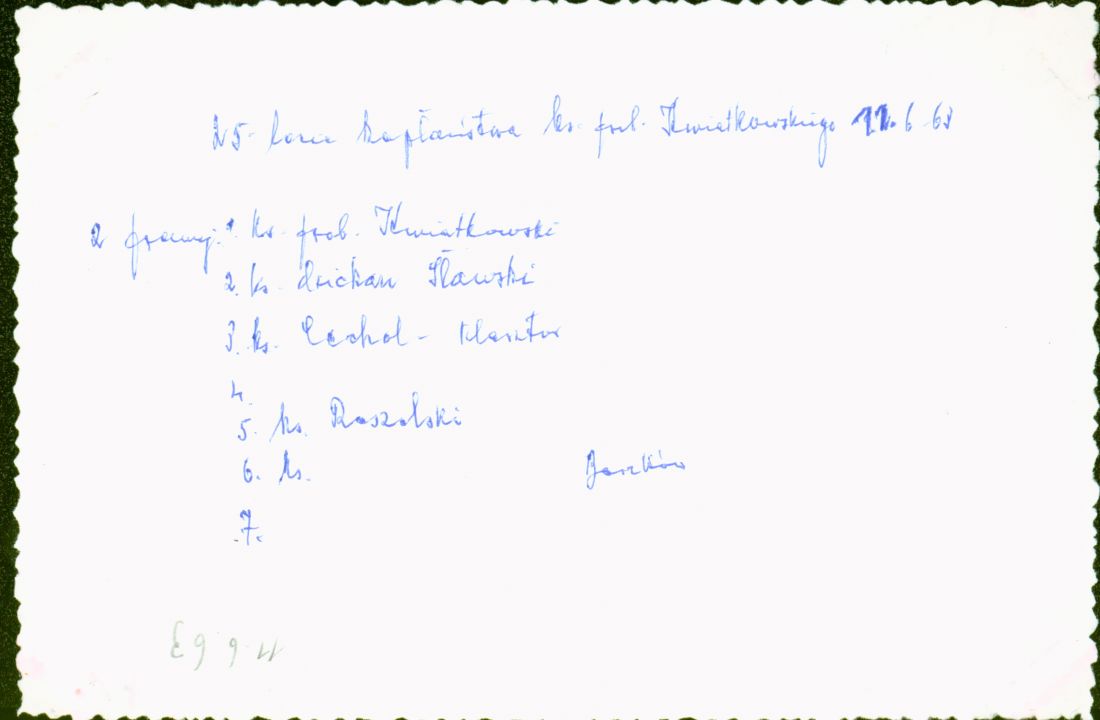 25-lecie kapłaństwa ks. prob. Kwiatkowskiego 11.6.63
z prawej: 1. ks. prob. Kwiatkowski
2. ks. dziekan Sławski
3. ks. Cechol - klasztor
4.
5. ks. Raszelski
6. ks. Baszków
7.
11 6 63